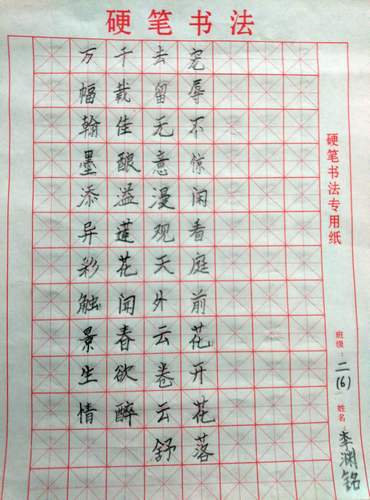 硬笔书法
硬笔书法专用纸
班级：二(6) 姓名 李渊铭
宠辱不惊闲看庭前花开花落
去留无意漫观天外云卷云舒
千载佳酿溢莲花闻春欲醉
万幅翰墨添异彩触景生情